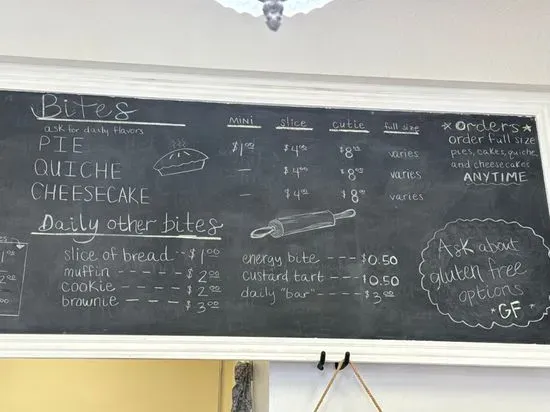 Bites
ask for daily flavors
MINI slice cutie full size
PIE $1.00 $4 $8 varies
QUICHE — $4 $8 varies
CHEESECAKE — $4 $8 varies
Daily other bites
slice of bread -- $1.00
muffin — — — — $2.00
cookie — — — — $2.00
brownie — — — — $3.00
energy bite --- $0.50
custard tart ---- $0.50
daily "bar" --- $3.00
*Orders*
order full size
pies, cakes, quiche,
and cheesecakes
ANYTIME
Ask about
gluten free
options
*GF*